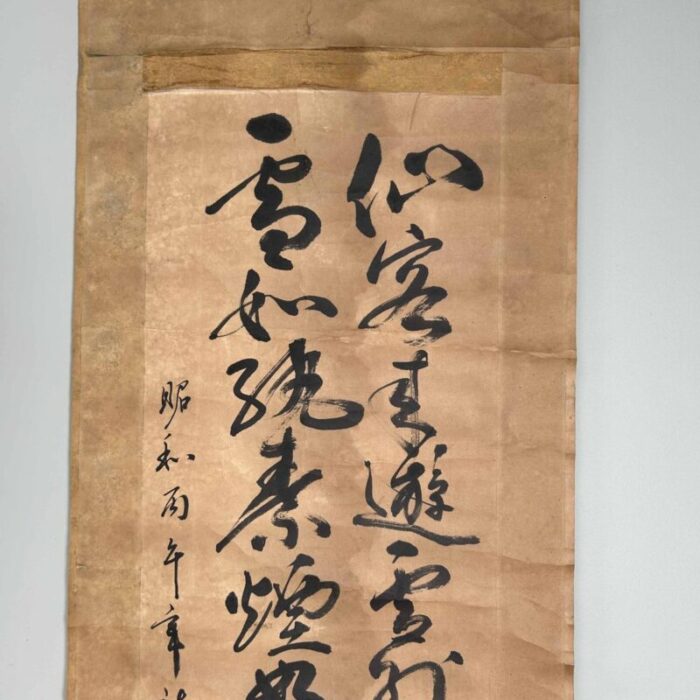 仙客來遊雲外
雪如紈素煙如
昭和丙午年